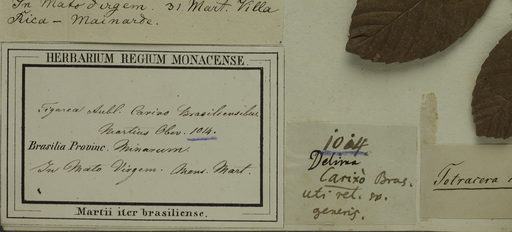 In Mato Virgem. 31 Mart. Villa
Rica – Mainarde.
HERBARIUM REGIUM MONACENSE.
Figarea Aubl. Carixo Brasiliensibus
Martius Obsv. 1014.
Brasilia Provinc. Minarum.
In Mato Virgem. Mens. Mart.
Martii iter brasiliense.
1014
Delima
Carixò Bras.
uti ret. sp.
generis.
Tetracera